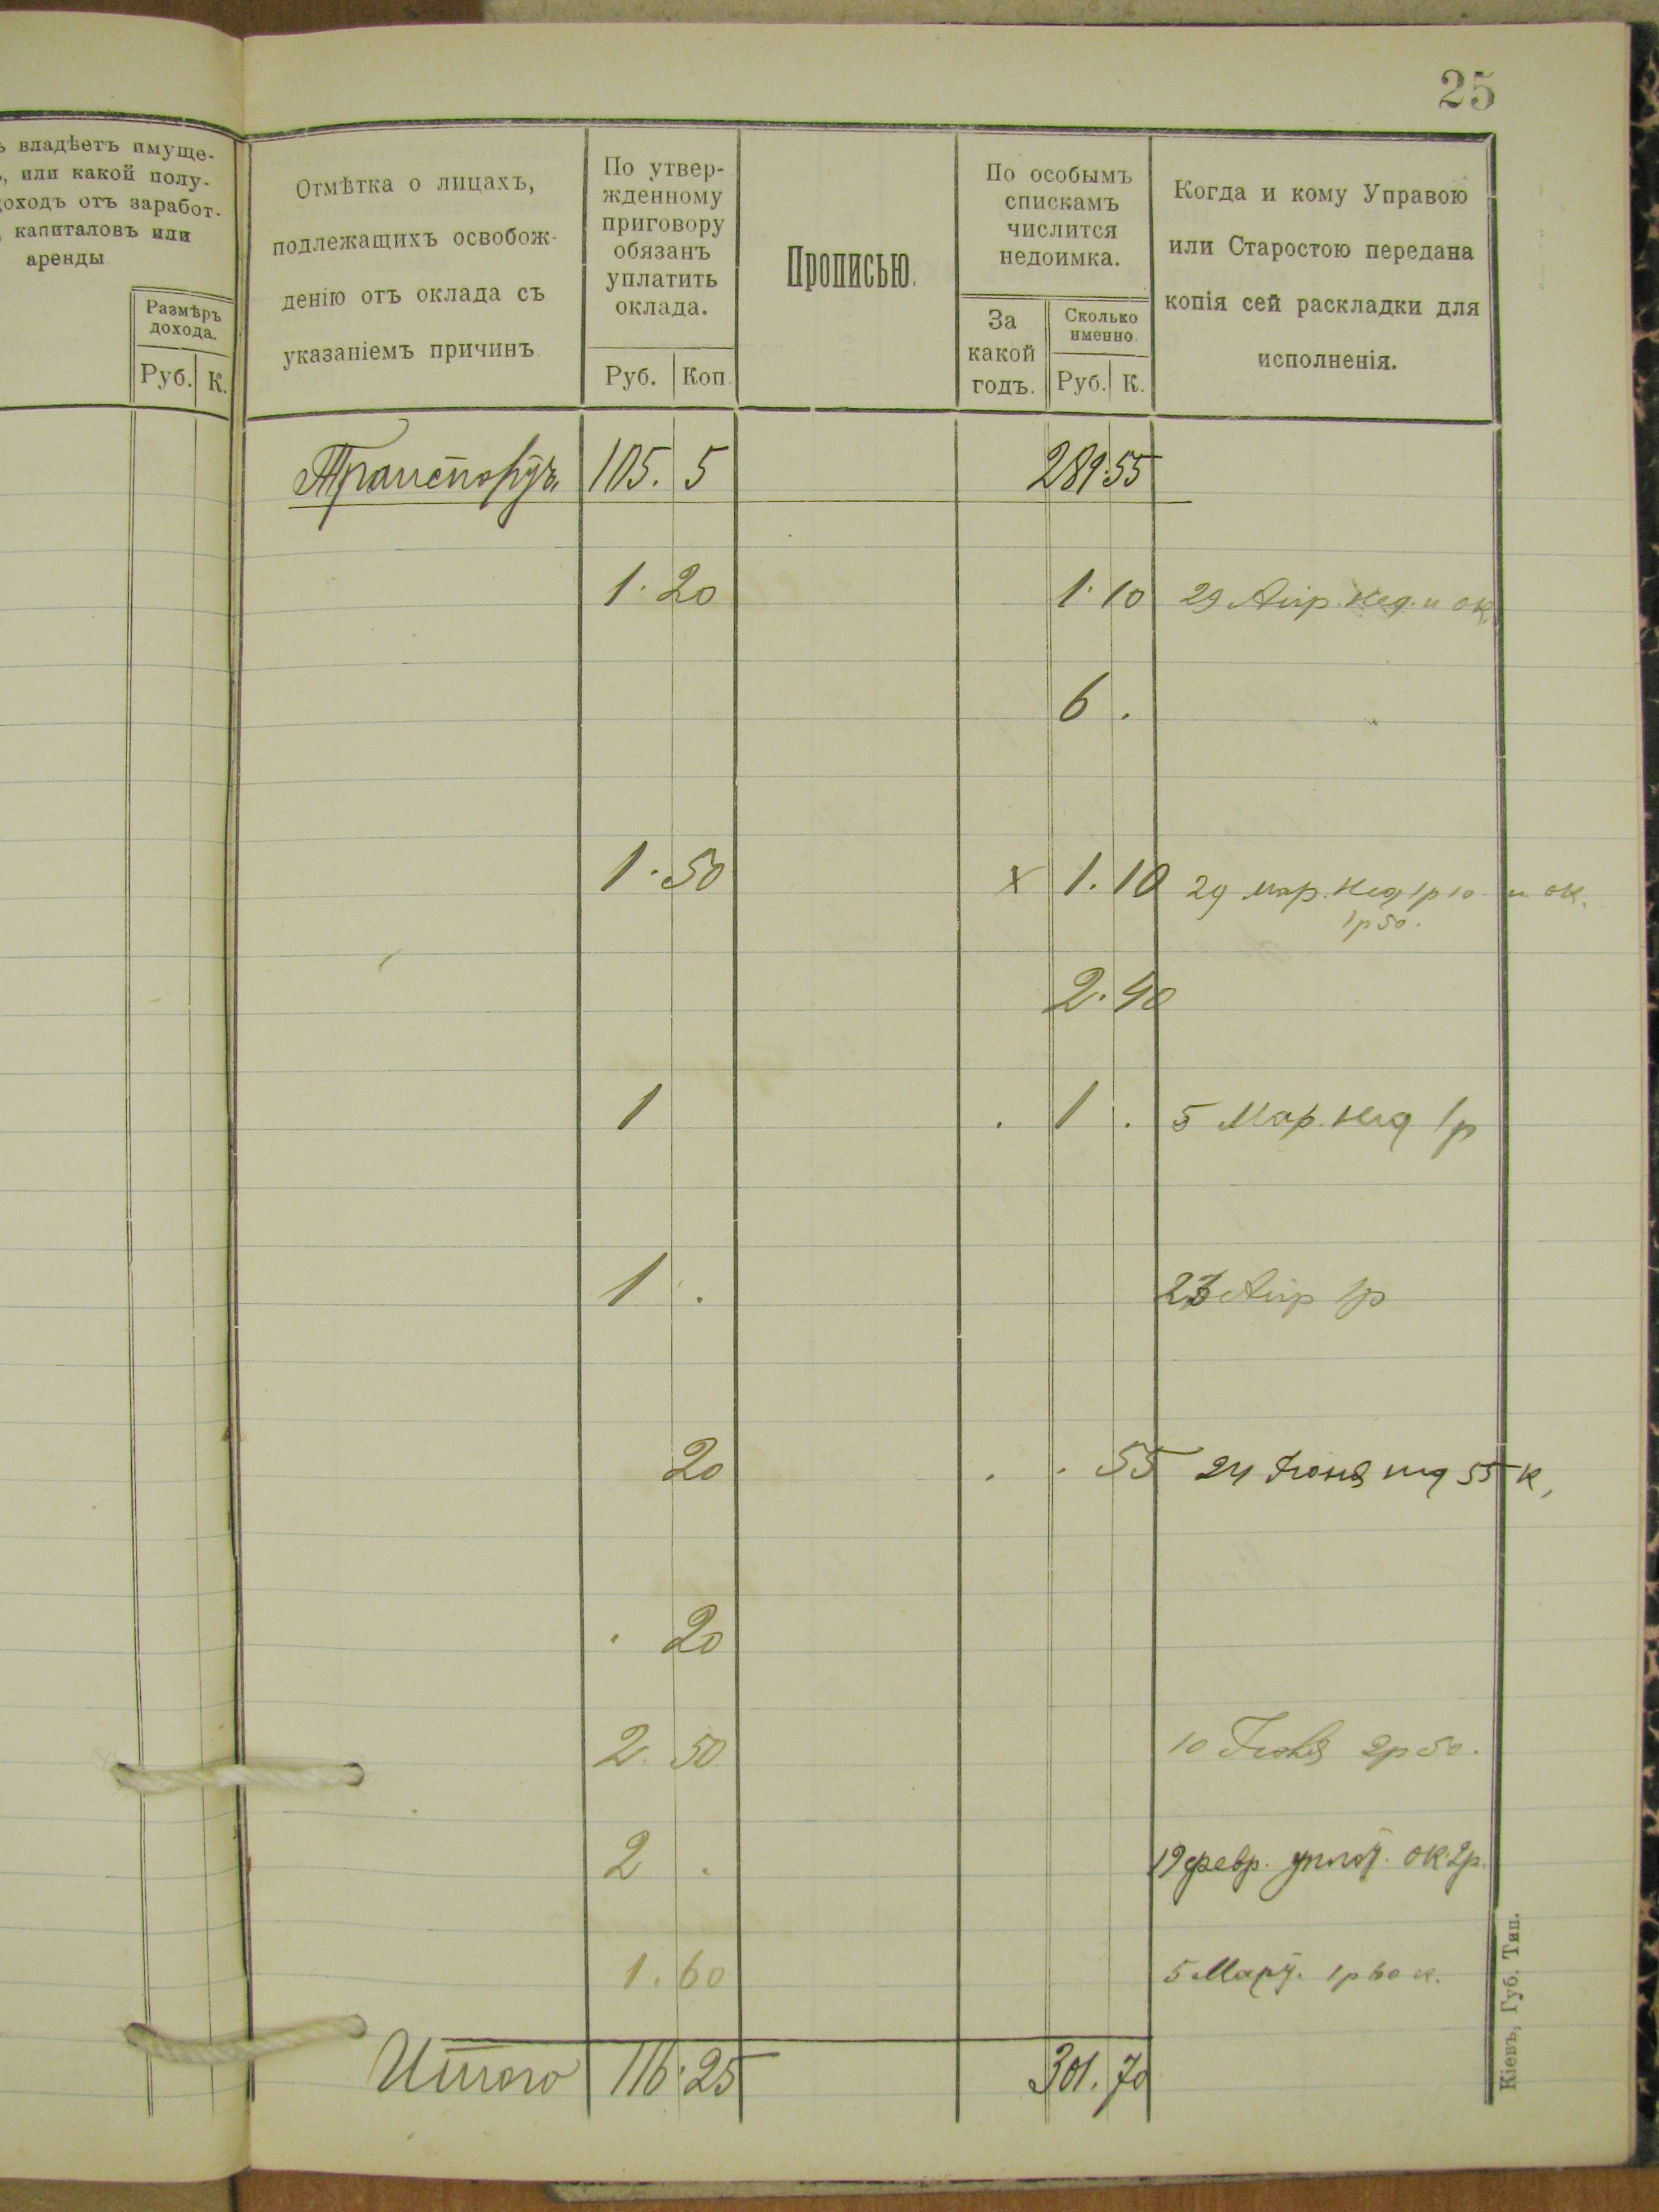 25
ъ владѣетъ имуще-
ъ, или какой полу-
доходъ отъ заработ-
, капиталовъ или
аренды
Размѣръ
дохода.
Руб. К.
Отмѣтка о лицахъ,
подлежащихъ освобож-
денію отъ оклада съ
указаніемъ причинъ.
По утвер-
жденному
приговору
обязанъ
уплатить
оклада.
Руб. Коп.
Прописью.
По особымъ
спискамъ
числится
недоимка.
За
какой
годъ.
Сколько
именно.
Руб. К.
Когда и кому Управою
или Старостою передана
копія сей раскладки для
исполненія.
Транспортъ 105. 5 289.55
1.20 1.10 29 Апр. нед. и ок.
6 .
1.50 х 1.10 29 мар. нед 1р 10 и ок.
1р 50.
2.40
1 . 1 . 5 Мар. нед 1р
1 . 23 Апр 1р
20 . . 55 24 Іюня нед 55 к,
. 20
2. 50 10 2р 50.
2 . 19 февр. уплот. ок. 2р.
1.60 5 Март. 1р 60 к.
Итого 116.25 301.70
Кіевъ, Губ. Тип.